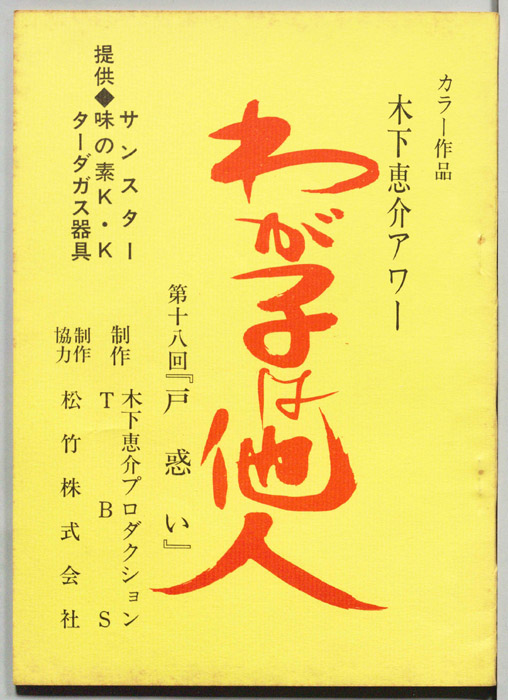 カラー作品
木下恵介アワー
わが子は他人
第十八回『戸惑い』
制作 木下恵介プロダクション
TBS
制作協力 松竹株式会社
提供◆サンスター
味の素K・K
ターダガス器具